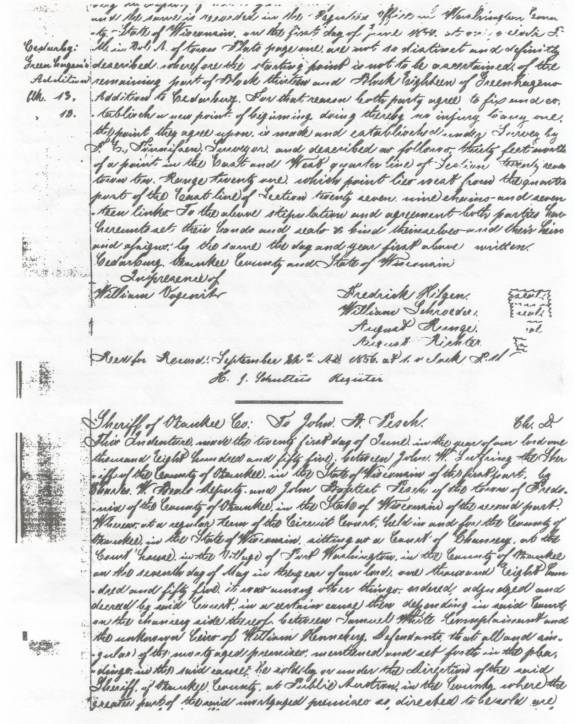 and the same is recorded in the Register Office in Washington Coun
ty State of Wisconsin, on the first day of June 1854. at one o clock P.
M. in Vol. A. of town Plats page one, are not so distinct and definitely
described wherefore the starting point is not to be ascertained, of the
remaining part of Block thirteen and Block Eighteen of Greenhagens
Addition to Cedarburg. For that reason both party agree to fix and es
tablish a new point of beginning doing thereby no injury to any one,
the point they agree upon is made and established under Survey by
Surveyor and described as follows, thirty feet north
of a point in the East and West quarter line of Section twenty seven
town ten, Range twenty one, which point lies west from the quarter
part of the East line of Section twenty seven nine chains and seven
teen links. To the above stipulation and agreement both parties have
hereunto set their hands and seals & bind themselves and their heirs
and assigns, by the same the day and year first above written.
Cedarburg Ozaukee County and State of Wisconsin
In presence of
William Fredrick Hilgen. seal
William Schroeder. seal
August Runge. al
August Richter.
Recd for Record: September A.D. 1856. at o clock P.M
H. J. Schulteis Register
Cedarbg:
Greenhagens
Addition
Blk. 13.
" 18.
Sheriff of Ozaukee Co: To John A. Pesch. Sh. D
This Indenture, made the twenty first day of June, in the year of our lord one
thousand Eight hundred and fifty five, between John W. the Sher
iff of the County of Ozaukee, in the State of Wisconsin of the first part, by
Charles W. Deputy, and John Pesch of the town of Fredo
nia of the County of Ozaukee, in the State of Wisconsin of the second part.
Whereas, at a regular term of the Circuit Court, held in and for the County of
Ozaukee, in the State of Wisconsin, sitting as a Court of Chancery, at the
Court house, in the Village of Port Washington, in the County of Ozaukee
on the seventh day of May in the year of our lord, one thousand Eight hun
dred and fifty five, it was among other things, ordered, adjudged and
decreed by said Court, in a certain cause then depending in said Court,
on the chancery side thereof, between Samuel White Complainant and
the unknown heirs of William Henneberg, Defendants, that all and sin
gular of the mortgaged premises, mentioned and set forth in the plea
dings, in the said cause, be sold by or under the Direction of the said
Sheriff, of Ozaukee, County, at Public Auction, in the County, where the
greater part of the said mortgaged premises so, directed to be sold are